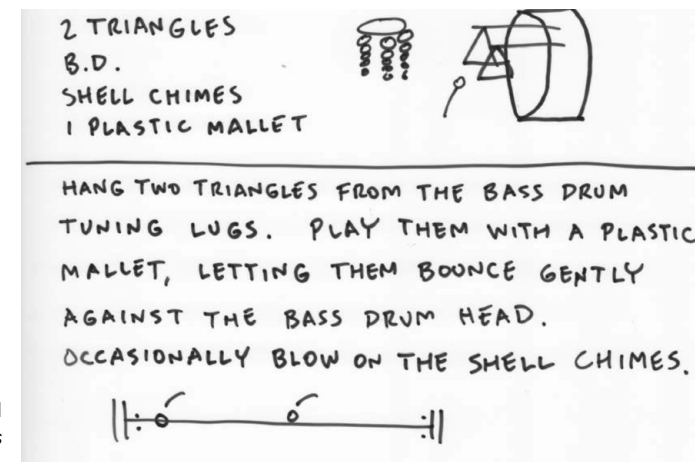 2 TRIANGLES
B.D.
SHELL CHIMES
1 PLASTIC MALLET
HANG TWO TRIANGLES FROM THE BASS DRUM
TUNING LUGS. PLAY THEM WITH A PLASTIC
MALLET, LETTING THEM BOUNCE GENTLY
AGAINST THE BASS DRUM HEAD.
OCCASIONALLY BLOW ON THE SHELL CHIMES.